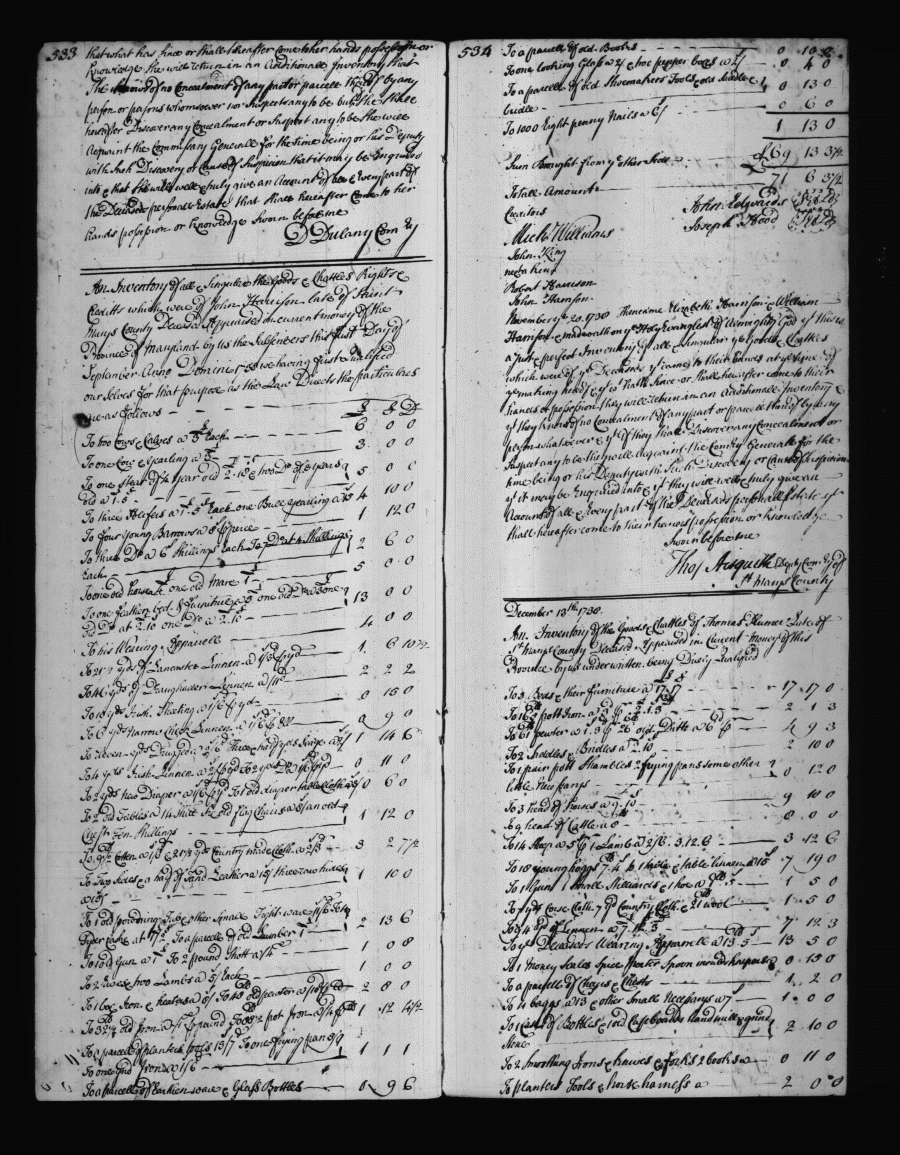 533
that what has since or shall hereafter come to her hands possession or
knowledge she will return in an Additionall Inventory that
She knows of no concealment of any part or parcell thereof by any
person or persons whomsoever nor Suspects any to be but if she
hereafter Discover any Concealment or Suspect any to be She will
Acquaint the Commissary Generall for the time being or his Deputy
with such Discovery or Cause of Suspicion that it may be Enquired
into & that she will well & truly give an Account of all & every part of
the Deceaseds personall Estate that shall hereafter Come to her
hands possession or knowledge Sworn before me
D Dulany Com Gy
An Inventory of all & Singular the Goods & Chattles Rights &
Creditts which were of John Harrison late of Saint
Marys County Deceasd Appraised in current money of the
Province of Maryland by us the Subscribers this first Day of
September Anno Domine 1730 we having first Qualified
our selves for that purpose as the Law Directs the particulars
are as follows
£ S D
To two Cows & Calves a 3 Each 6 0 0
To one Cow & yearling a 3 3 0 0
To one Stear of 4 year old 2.10 & two Do of 3 years
old a 1.5 5 0 0
To three Heifers a 1.5 Each one Bull yearling a 15 4 10 0
To four Young Barrows a 8 apiece 1 12 0
To three Do a 6 Shillings Each To 7 Do at 4 Shillings
Each 2 6 0
To one old horse 4 one old Mare 1 5 0 0
To one feather bed & furniture a 5 one old Do a 3 one
old Do at 2.10 one Do a 2.10 13 0 0
To his Wearing Apparell 4 0 0
To 21 1/2 yds of Lincaster Linnen a 1/3 p yd 1 6 10 1/2
To 46 yds of Linnen a 11d 2 2 2
To 10 yds Irish Sheeting a 1/6 p yd 0 15 0
To 6 yds narrow Linnen a 1/6 p Ell 0 9 0
To Eleven yds Druggett a Three & half yds Serge a 1 14 6
To 4 yds Irish Linnen a 2/ p yd To 2 yds Do 1/6 p yd 0 11 0
To 2 yds new Diaper a 1/6 p yd To 1 old diaper table Cloth 0 6 0
To 2 old Tables a 14 Shill Six old flag Chairs a 8/ an old
Chest Ten Shillings 1 12 0
To 9 1/2 Cotten a 1/8 & 21 1/2 yds Country made Cloth a 2/3 3 2 7 1/2
To Two Sides & a half of Tand Leather a 15/ three raw hides
a 15/ 1 10 0
To 1 old powdring Tub & other Small Tight ware
Tallow & 2 13 6
To 1 old Gun a 1 To 2 pound Shott a/4 1 0 8
To 2 Ewes & two Lambs a 5/ Each 1 0 0
To 1 box Iron & heaters a 5/ To 48 old pewter a 2 8 0
To 32 1/2 old Iron a pound To 82 pot Iron a 1 12 4 1/2
To a parcell of planters tools 13/7 To one frying pan 3/ 1 1 1
To one End Iron a 1/6
To a parcell of Earthen ware & Glass Bottles 0 9 6
534
To a parcell of old Books 0 10 0
To one looking Glass a 2/ & two pepper boxes a 2/ 0 4 0
To a parcell of old Shoemakers Tools, old Saddle &
bridle 0 13 0
To 1000 Eight penny Nails a 6/ 0 6 0
1 13 0
Sum Brought from ye other Side £69 13 3 1/2
Totall Amount 71 6 3 1/2
Creditors
John Edwards Seal
Joseph Hood Seal
Mich Williams
John King
next a kin
Robert Harrison
John Harrison
November ye 20. 1730 Then came Elizabeth Harrison & William
Harrison & made oath on ye Holy Evangelist of Almighty God yt this is
a Just & perfect Inventory of all & Singular ye Goods & Chattles
which were of ye Deceased yt came to their hands at ye time of
ye making hereof & yt wt hath Since or shall hereafter come to their
hands or possession they will return in an Additionall Inventory &
yt they know of no Concealment of any part or parcell thereof by any
person whatsoever & yt if they shall Discover any Concealment or
Suspect any to be they will Acquaint the Comry Generale for the
time being or his Deputy with Such Discovery or Cause of Suspicion
yt it may be Enquired Into & yt they will well & truly give an
Account of all & every part of the Deceaseds personall Estate yt
shall hereafter come to their hands possession or knowledge
Sworn before me
Thos Aisquith Depty Com ry of
St Marys County
December 13th 1730.
An Inventory of the Goods & Chattles of Thomas Plumer Late of
St Marys County Deceased Appraised in Current Money of this
Province by us underwritten being Duely Qualified
To 3 Beds & their furniture a 17.17 17 17 0
To 162 pott Iron a 2.1.3 2 1 3
To 61 pewter a 1.3 p 26 old Ditto a 6 p 4 9 3
To 2 Saddles & Bridles a 2.10 2 10 0
To 1 pair pott Shambles 2 frying pans some other
little Necessarys 0 12 0
To 3 head of horses a 9.10 9 10 0
To 4 head of Cattle a 8 8 0 0
To 14 Sheep a 5/ p 1 Lamb a 2/6 3.12.6 3 12 6
To 18 young hoggs 7.4 to 1 table & table Linnen a 15 7 19 0
To 1 Gunn 1 Small Stilliards & hoe a 1.5 1 5 0
To 7 yds Corse Cloth 7 yd Country Cloth & 21 wool 1 5 0
To 54 yd of Linnen a 7.12.3 7 12 3
To ye Deceaseds Wearing Apparell a 13.5 13 5 0
To 1 money Scales Spice Morter Spoon 0 15 0
To a parcell of Cheyrs & Chests 1 2 0
To 4 baggs a 13 & other Small Necessarys a 7 1 0 0
To 1 Case of Bottles & 1 old Cubboard & Hand mill & grind
stone 2 10 0
To 2 Smoothing Irons & knives & forks 2 books a 0 11 0
To planters Tools & horse harness a 2 0 0